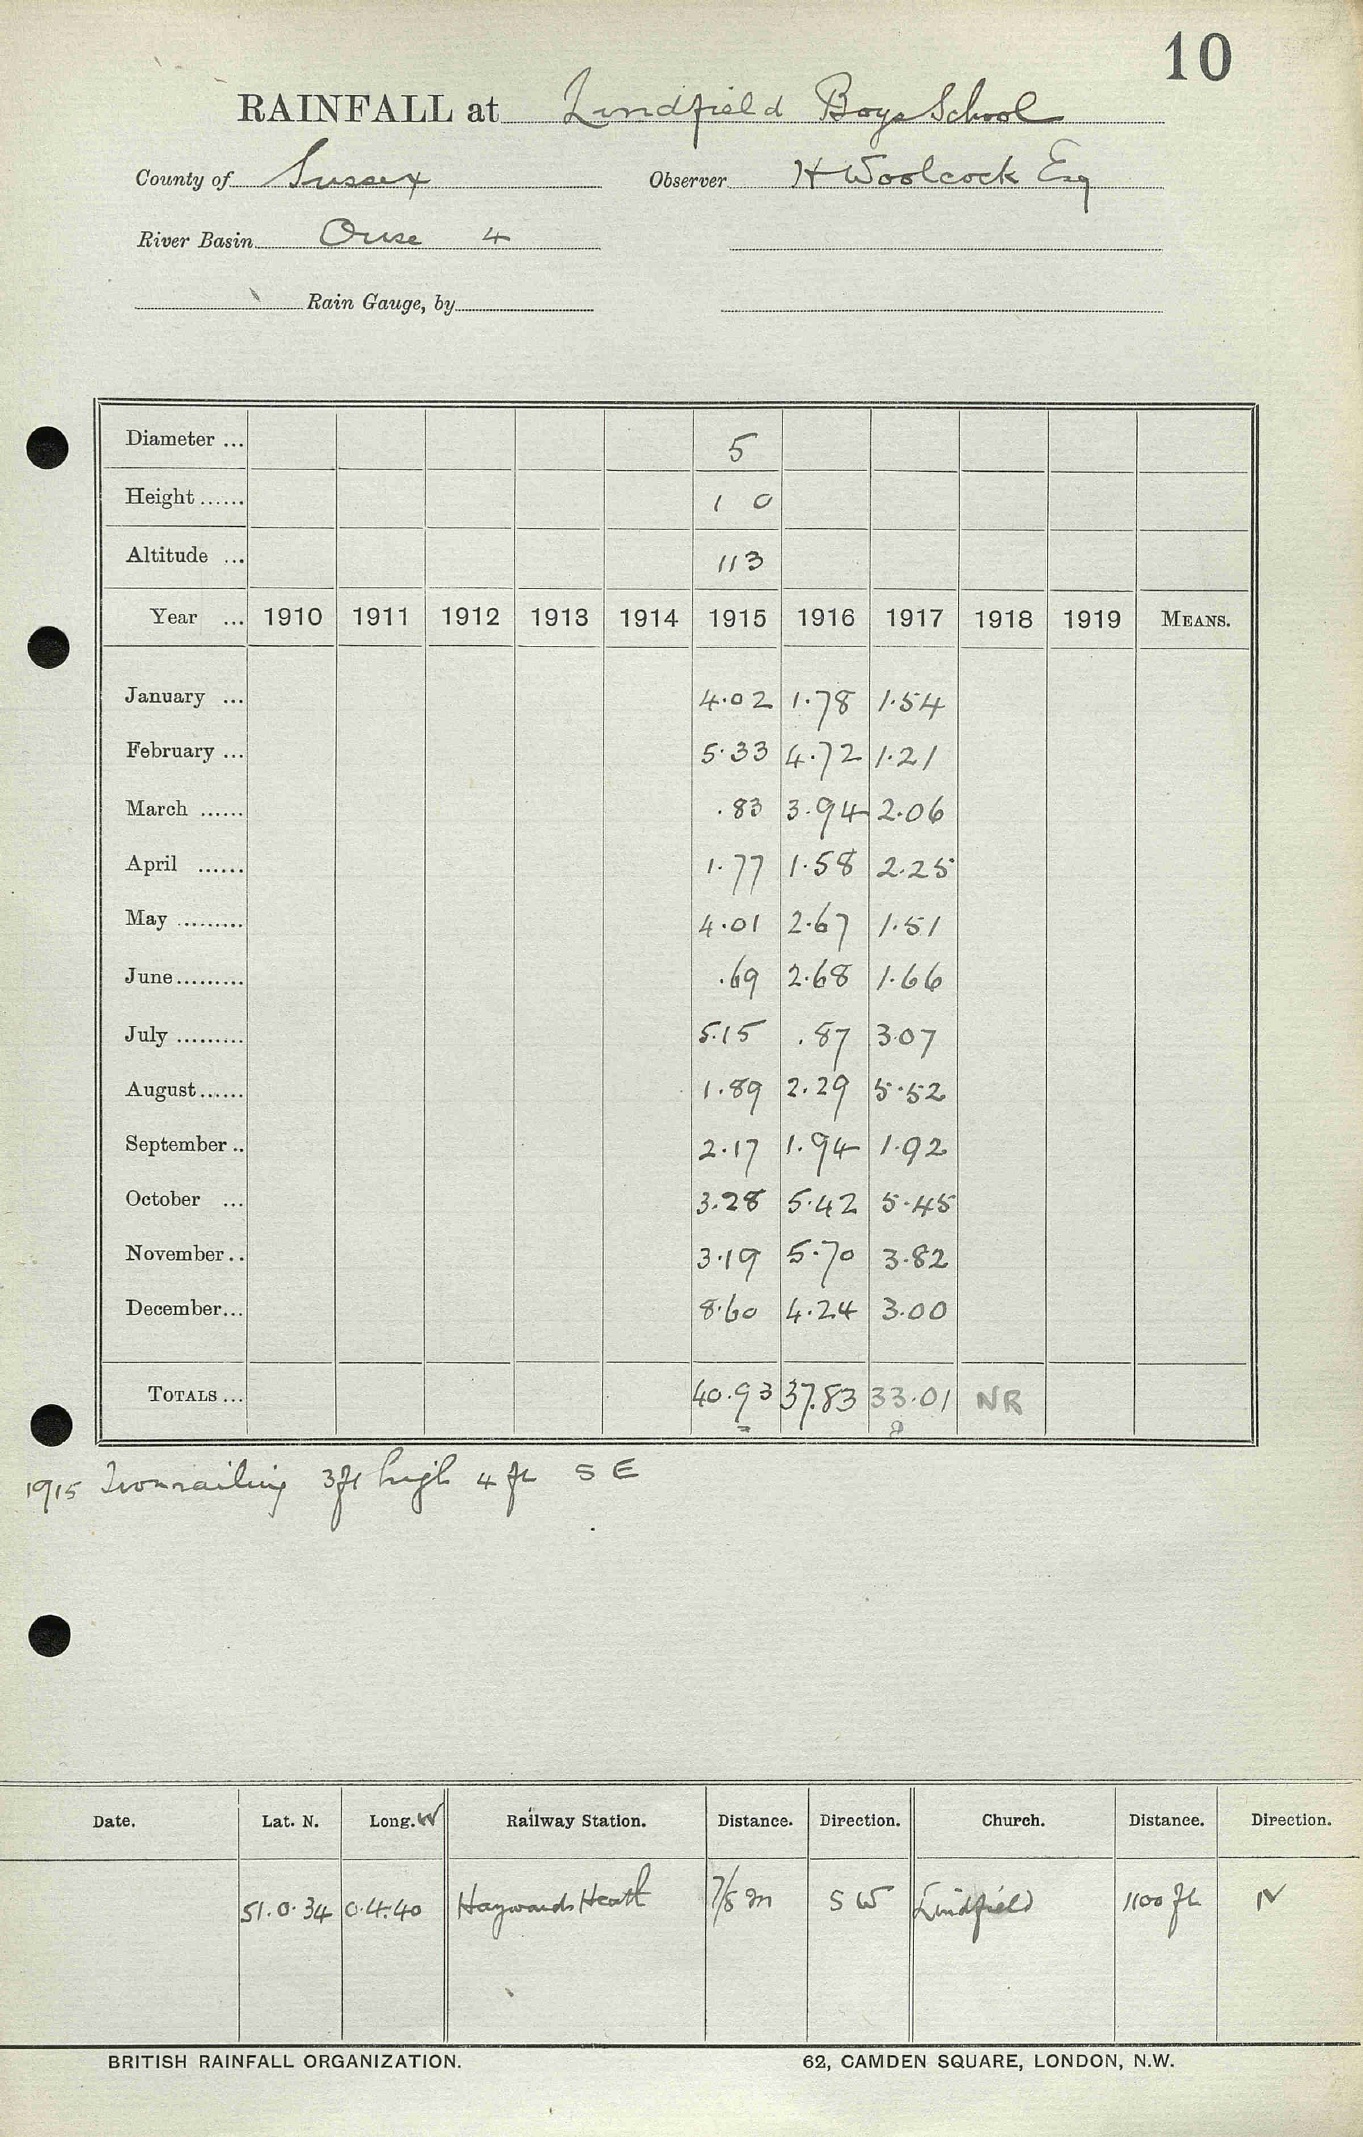 10
RAINFALL at Lindfield Boys School
County of Sussex Observer H Woolcock Esq
River Basin Ouse 4
Rain Gauge, by
Diameter ... 5
Height ...... 1 0
Altitude ... 113
Year ... 1910 1911 1912 1913 1914 1915 1916 1917 1918 1919 MEANS.
January ... 4.02 1.78 1.54
February ... 5.33 4.72 1.21
March ...... .83 3.94 2.06
April ...... 1.77 1.58 2.25
May ......... 4.01 2.67 1.51
June......... .69 2.68 1.66
July ......... 5.15 .87 3.07
August...... 1.89 2.29 5.52
September .. 2.17 1.94 1.92
October ... 3.28 5.42 5.45
November .. 3.19 5.70 3.82
December... 8.60 4.24 3.00
TOTALS ... 40.93 37.83 33.01 NR
1915 Iron railing 3ft high 4 ft S E
Date. Lat. N. Long. W Railway Station. Distance. Direction. Church. Distance. Direction.
51.0.34 0.4.40 Haywards Heath 7/8 m S W Lindfield 1100 ft N
BRITISH RAINFALL ORGANIZATION. 62, CAMDEN SQUARE, LONDON, N.W.